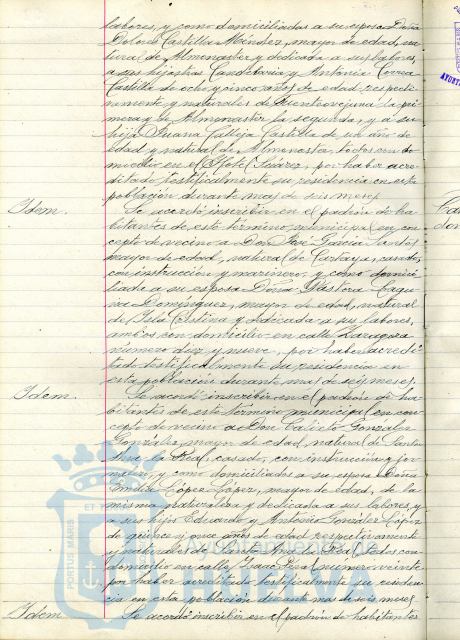 labores, y como domiciliados a su esposa Doña
Dolores Castilla Méndez, mayor de edad, na-
tural de Almonaster y dedicada a sus labores,
a sus hijastras Candelaria y Antonia Correa
Castilla de ocho y cinco años de edad respecti-
vamente y naturales de Fuenteovejuna la pri-
mera y de Almonaster la segunda, y a su
hija Juana Calleja Castilla de un año de
edad y natural de Almonaster, todos con do-
micilio en el Hotel Suárez, por haber acre-
ditado testificalmente su residencia en esta
población durante mas de seis meses.
Idem.
Se acordó inscribir en el padrón de ha-
bitantes de este término municipal en con-
cepto de vecino a Don José García Santos
mayor de edad, natural de Cartaya, casado,
con instrucción y marinero, y como domici-
liada a su esposa Doña Pastora
Domínguez, mayor de edad, natural
de Isla Cristina y dedicada a sus labores,
ambos con domicilio en calle Zaragoza
número diez y nueve, por haber acredi-
tado testificalmente su residencia en
esta población durante mas de seis meses.
Idem.
Se acordó inscribir en el padrón de ha-
bitantes de este término municipal en con-
cepto de vecino a Don Calixto González
González, mayor de edad, natural de Santa
Ana la Real, casado, con instrucción y jor-
nalero, y como domiciliados a su esposa Doña
Emilia López López, mayor de edad, de la
misma naturaleza y dedicada a sus labores y
a sus hijos Eduardo y Antonio González López
de quince y once años de edad respectivamente
y naturales de Santa Ana la Real, todos con
domicilio en calle Isaac Peral número veinte
por haber acreditado testificalmente su residen-
cia en esta población durante mas de seis meses.
Idem.
Se acordó inscribir en el padrón de habitantes
PORTUS MARIS
Ayuntamiento de
HUELVA